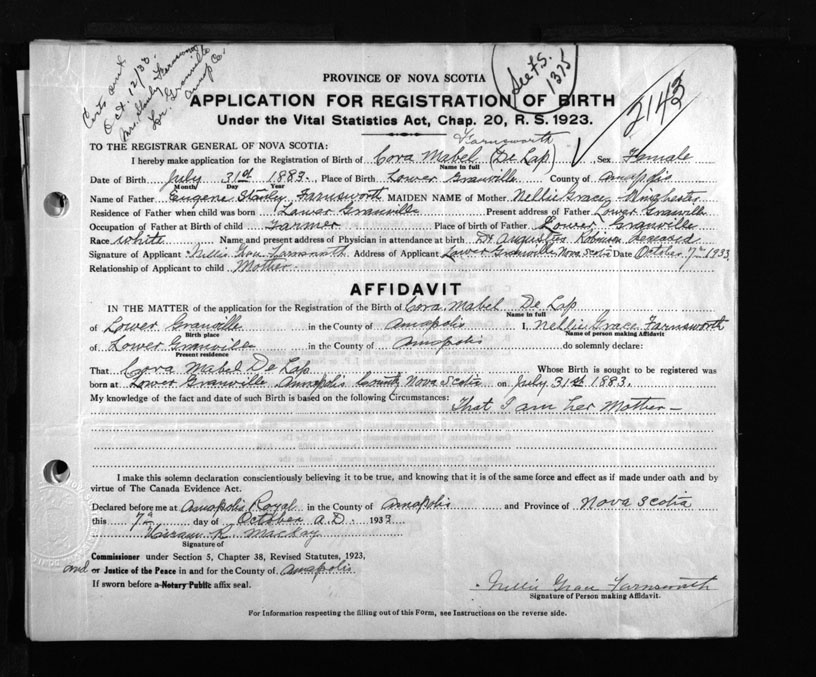 Certs and
Oct. 12/33.
Mrs. Stanley Farnsworth
Lr. Granville
Annap Co.
See F.S.
1375
2143
PROVINCE OF NOVA SCOTIA
APPLICATION FOR REGISTRATION OF BIRTH
Under the Vital Statistics Act, Chap. 20, R. S. 1923.
Farnsworth
TO THE REGISTRAR GENERAL OF NOVA SCOTIA:
I hereby make application for the Registration of Birth of Cora Mabel (De Lap) Sex Female
Name in full
Date of Birth July 31st 1883. Place of Birth Lower Granville County of Annapolis
Month Day Year
Name of Father Eugene Stanley Farnsworth MAIDEN NAME of Mother Nellie Grace Winchester
Residence of Father when child was born Lower Granville Present address of Father Lower Granville
Occupation of Father at Birth of child Farmer Place of birth of Father Lower Granville
Race white Name and present address of Physician in attendance at birth Dr Augustus Robinson Deceased
Signature of Applicant Nellie Grace Farnsworth Address of Applicant Lower Granville Nova Scotia Date October 7th 1933
Relationship of Applicant to child Mother.
AFFIDAVIT
IN THE MATTER of the application for the Registration of the Birth of Cora Mabel De Lap
Name in full
of Lower Granville in the County of Annapolis I, Nellie Grace Farnsworth
Birth place Name of person making Affidavit
of Lower Granville in the County of Annapolis do solemnly declare:
Present residence
That Cora Mabel De Lap Whose Birth is sought to be registered was
born at Lower Granville Annapolis County Nova Scotia on July 31st 1883.
My knowledge of the fact and date of such Birth is based on the following Circumstances:
That I am her Mother —
I make this solemn declaration conscientiously believing it to be true, and knowing that it is of the same force and effect as if made under oath and by
virtue of The Canada Evidence Act.
Declared before me at Annapolis Royal in the County of Annapolis and Province of Nova Scotia
this 7th day of October A.D. 1933
Hiram R. Mackay
Signature of
Commissioner under Section 5, Chapter 38, Revised Statutes, 1923,
and or Justice of the Peace in and for the County of Annapolis
If sworn before a Notary Public affix seal.
Nellie Grace Farnsworth
Signature of Person making Affidavit.
For Information respecting the filling out of this Form, see Instructions on the reverse side.